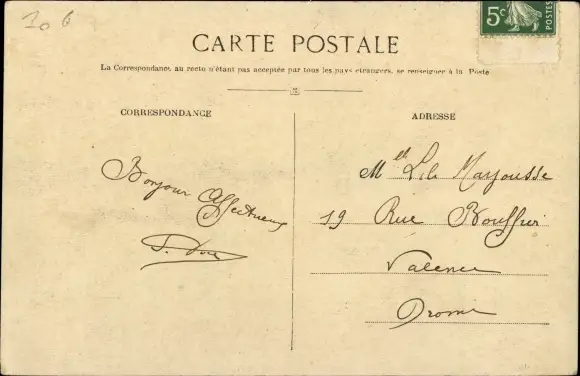 5c
POSTES
CARTE POSTALE
La Correspondance au recto n'étant pas acceptée par tous les pays étrangers, se renseigner à la Poste
CORRESPONDANCE
ADRESSE
Bonjour Affectueux
Melle Lila Mayousse
19 Rue Bouffier
Valence
Drome